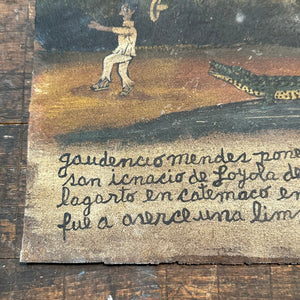 gaudencio mendes pone
san icnacio de Loyola de
lagarto en catemaco en
fue a aserce una lim